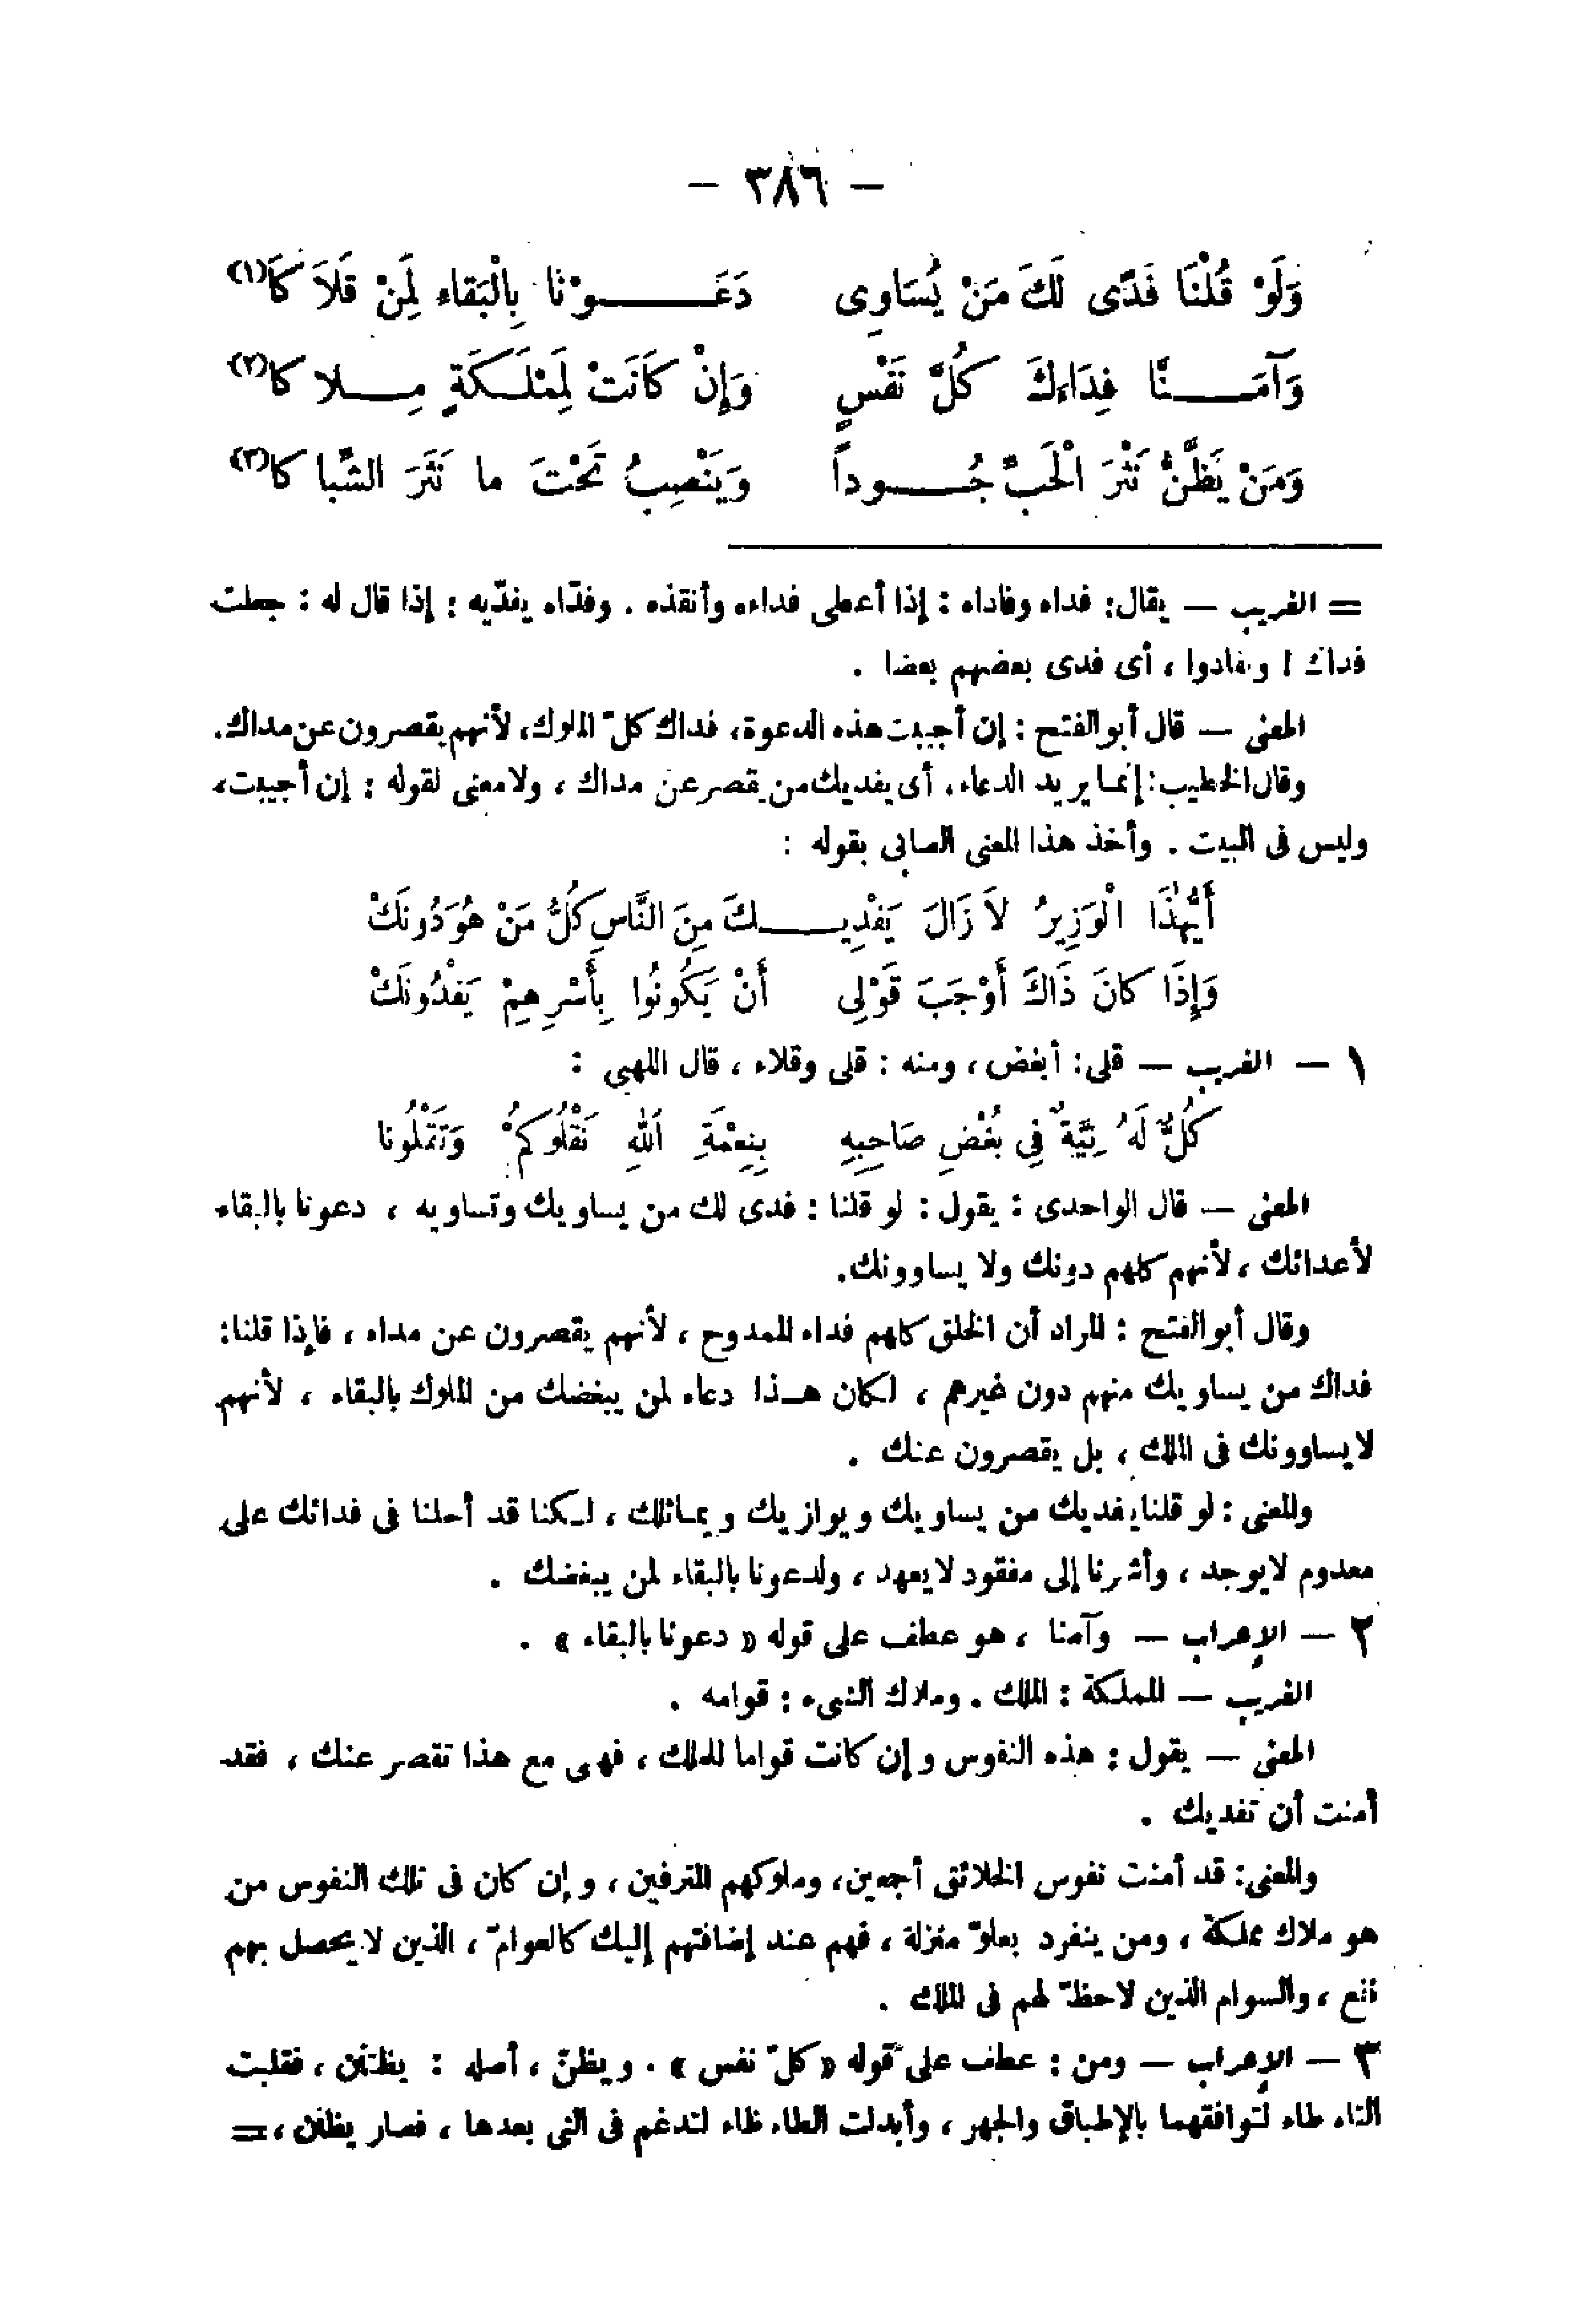 — ٣٨٦ —
وَلَوْ قُلْنَا فَدًى لَكَ مَنْ يُسَاوِى دَعَوْنا بِالْبَقاء لِمَنْ قَلَاَكَا (١)
وَآمَنَّا فِدَاءَكَ كُلَّ نَفْسٍ وَإِنْ كَانَتْ لِمَمْلَكَةٍ مِلاكا (٢)
وَمَنْ يَظَّنُّ نَثْرَ الْحَبِّ جُوداً وَيَنْصِبُ تَحْتَ ما نَثَرَ الشِّباكا (٣)
= الغريب — يقال: فداه وفاداه : إذا أعطى فداءه وأنقذه . وفدّاه يفدّيه : إذا قال له : جعلت
فداك ! وتفادوا ، أى فدى بعضهم بعضا .
المعنى — قال أبو الفتح : إن أجيبت هذه الدعوة، فداك كلّ الملوك، لأنهم يقصرون عن مداك.
وقال الخطيب : إنما يريد الدعاء. أى يفديك من يقصر عن مداك ، ولا معنى لقوله : إن أجيبت،
وليس فى البيت . وأخذ هذا المعنى الصابى بقوله :
أَيُّهٰذَا الْوَزِيرُ لاَ زَالَ يَفْدِيكَ مِنَ النَّاسِ كُلُّ مَنْ هُوَ دُونَكْ
وَإِذَا كانَ ذَاكَ أَوْجَبَ قَوْلِى أَنْ يَكُونُوا بِأَسْرِهِمْ يَفْدُونَكْ
١ — الغريب — قلى: أبغض ، ومنه : قلى وقلاء ، قال اللهبى :
كُلٌّ لَهُ نِيَّةٌ فِى بُغْضِ صَاحِبِهِ بِنِعْمَةِ اللهِ نَقْلُوكُمْ وَتَقْلُونا
المعنى — قال الواحدى : يقول : لو قلنا : فدى لك من يساويك وتساويه ، دعونا بالبقاء
لأعدائك ، لأنهم كلهم دونك ولا يساوونك.
وقال أبو الفتح : المراد أن الخلق كلهم فداء للممدوح ، لأنهم يقصرون عن مداه ، فإذا قلنا:
فداك من يساويك منهم دون غيرهم ، لكان هذا دعاء لمن يبغضك من الملوك بالبقاء ، لأنهم
لا يساوونك فى الملك ، بل يقصرون عنك .
والمعنى : لو قلنا يفديك من يساويك ويوازيك ويماثلك ، لكنا قد أحلنا فى فدائك على
معدوم لا يوجد ، وأشرنا إلى مفقود لا يعهد ، ولدعونا بالبقاء لمن يبغضك .
٢ — الإعراب — وآمنا ، هو عطف على قوله « دعونا بالبقاء » .
الغريب — المملكة : الملك . وملاك الشىء : قوامه .
المعنى — يقول : هذه النفوس وإن كانت قواما للملك ، فهى مع هذا تقصر عنك ، فقد
أمنت أن تفديك .
والمعنى: قد أمنت نفوس الخلائق أجمعين، وملوكهم المترفين ، وإن كان فى تلك النفوس من
هو ملاك مملكة ، ومن ينفرد بعلوّ منزلة ، فهم عند إضافتهم إليك كالعوامّ ، الذين لا يحصل بهم
نفع ، والسوام الذين لاحظّ لهم فى الملك .
٣ — الإعراب — ومن : عطف على قوله « كلّ نفس » . ويظنّ ، أصله : يظتنن ، فقلبت
التاء طاء لتوافقهما بالإطباق والجهر ، وأبدلت الطاء ظاء لتدغم فى التى بعدها ، فصار يظنن ، =